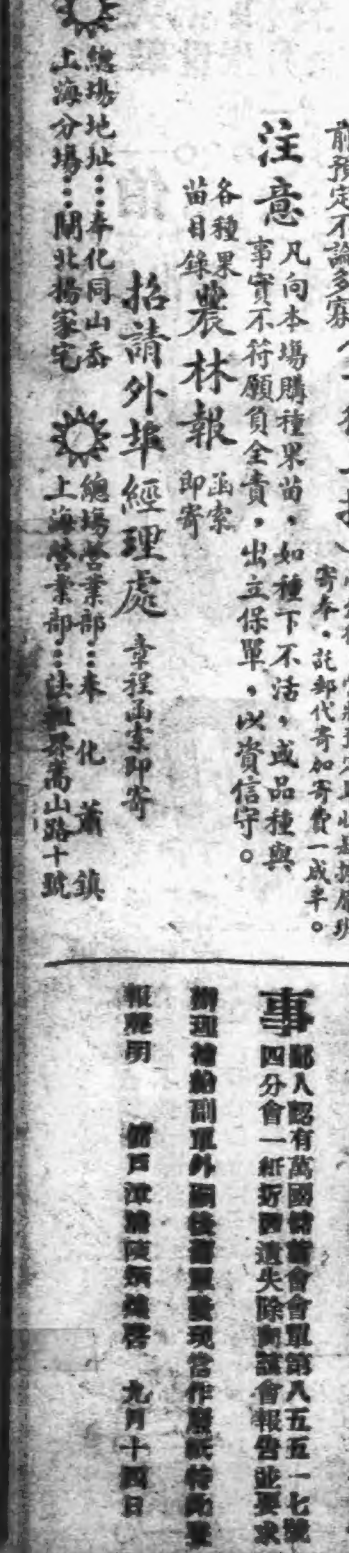 前預定不論多寡
寄奉·託郵代寄加寄費一成半。
注意
凡向本場購種果苗·如種下不活·或品種與
事實不符願負全責·出立保單·以資信守。
各種果
苗目錄
農林報
函索
即寄
招請外埠經理處
章程函索即寄
總場地址…奉化同山岙
上海分場…閘北揚家宅
總場營業部…奉化蕭鎮
上海營業部…法租界嵩山路十號
事
鄙人認有萬國儲蓄會會單第八五五一七號
四分會一紙 遺失除向該會報告並要求
辦理補給副單外 發現 作廢紙特此登
報聲明
九月十四日